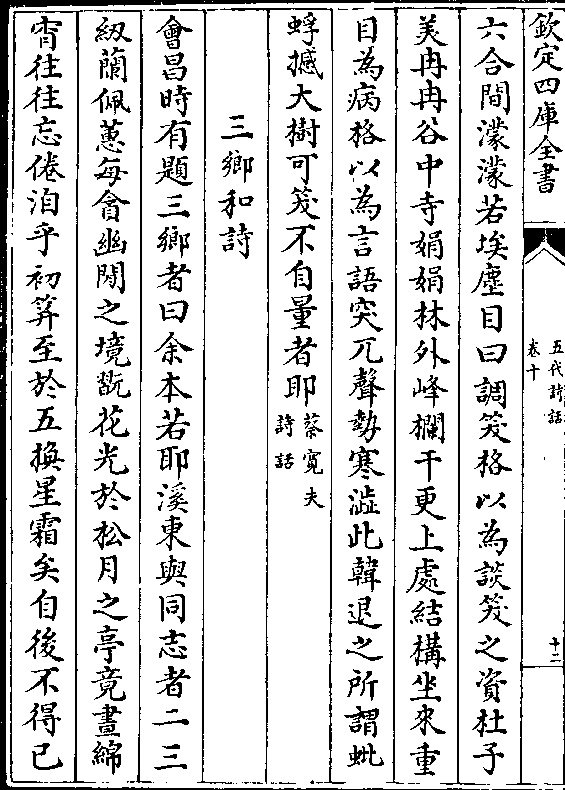 欽定四庫全書
五代詩話
卷十
十二
六合間濛濛若埃塵目曰調笑格以為談笑之資杜子
美冉冉谷中寺娟娟林外峰欄干更上處結構坐來重
目為病格以為言語突兀聲勢寒澁此韓退之所謂蚍
蜉撼大樹可笑不自量者耶蔡寬夫
詩話
三鄉和詩
會昌時有題三鄉者曰余本若耶溪東與同志者二三
紉蘭佩蕙每會幽閒之境翫花光於松月之亭竟晝綿
宵往往忘倦洎乎初笄至於五換星霜矣自後不得已